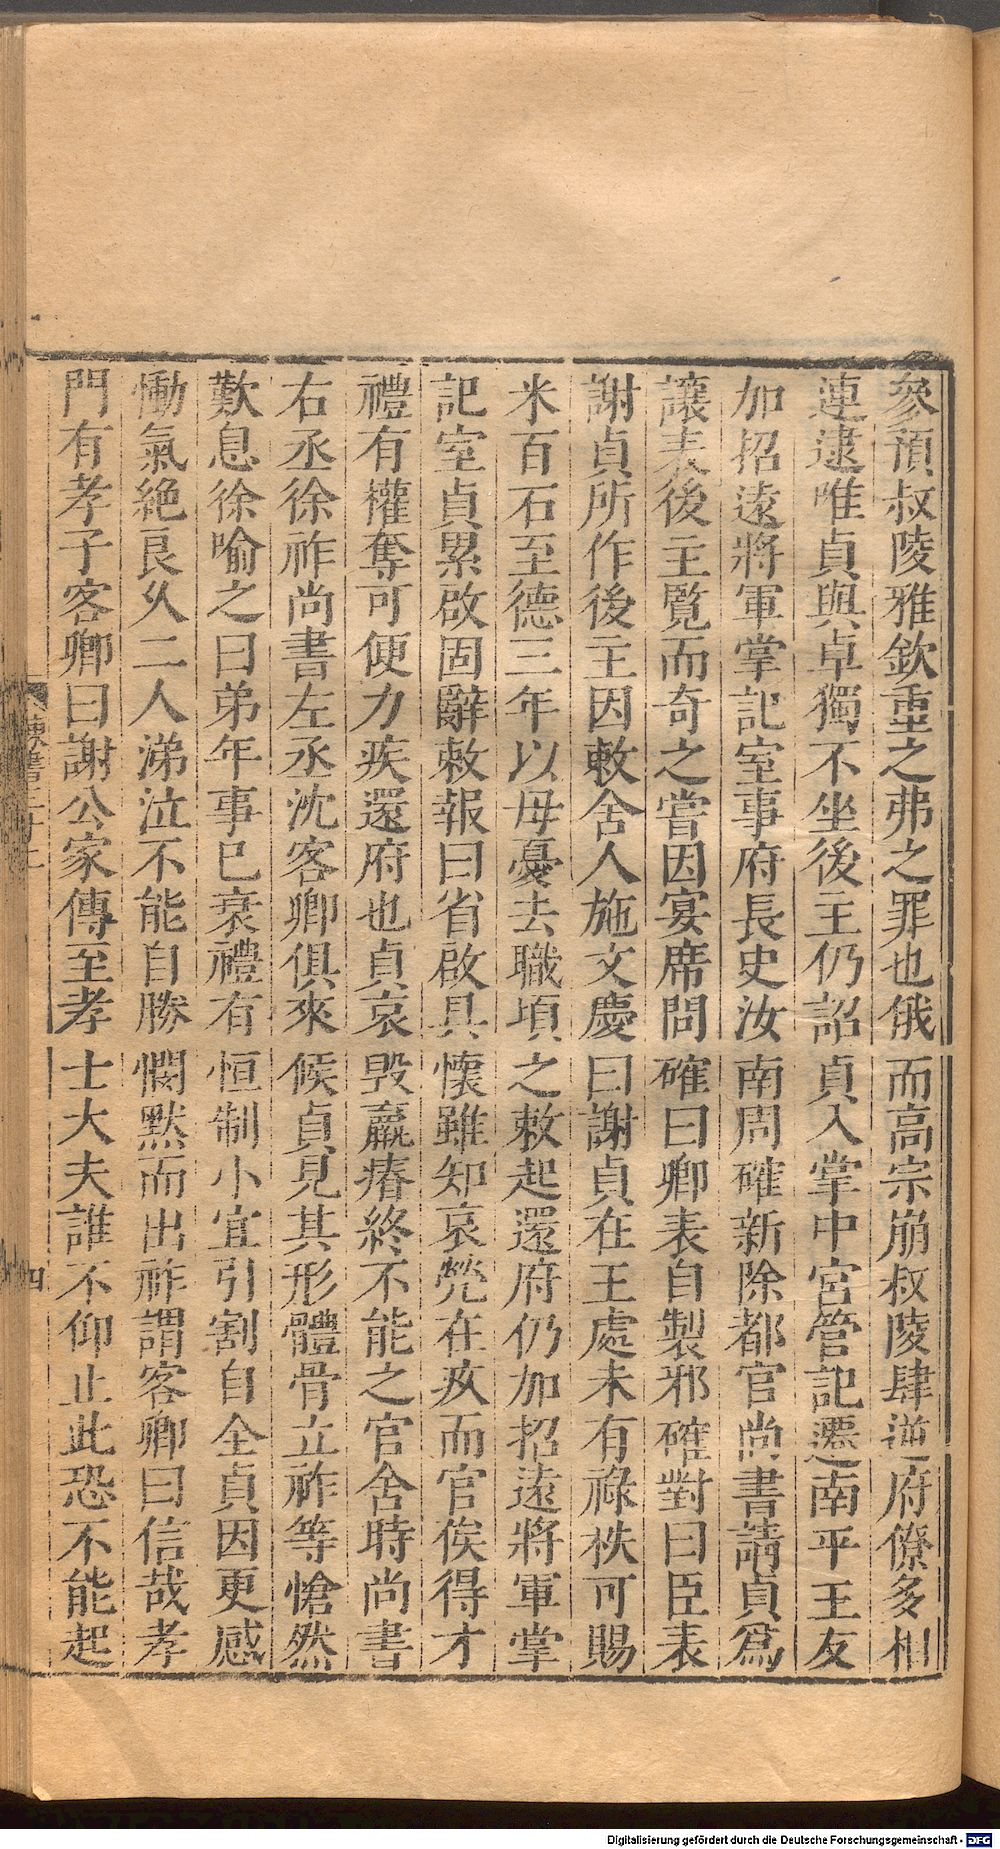 參預叔陵雅欽重之弗之罪也俄而高宗崩叔陵肆逆府僚多相
連逮唯貞與卓獨不坐後主仍詔貞入掌中宮管記遷南平王友
加招遠將軍掌記室事府長史汝南周確新除都官尚書請貞爲
讓表後主覽而奇之嘗因宴席問確曰卿表自製邪確對曰臣表
謝貞所作後主因敕舍人施文慶曰謝貞在王處未有祿秩可賜
米百石至德三年以母憂去職頃之敕起還府仍加招遠將軍掌
記室貞累啟固辭敕報曰省啟具懷雖知哀煢在疚而官俟得才
禮有權奪可便力疾還府也貞哀毀羸瘠終不能之官舍時尚書
右丞徐祚尚書左丞沈客卿俱來候貞見其形體骨立祚等愴然
歎息徐喻之曰弟年事已衰禮有恒制小宜引割自全貞因更感
慟氣絶良久二人涕泣不能自勝憫默而出祚謂客卿曰信哉孝
門有孝子客卿曰謝公家傳至孝士大夫誰不仰止此恐不能起
四
Digitalisierung gefördert durch die Deutsche Forschungsgemeinschaft - DFG